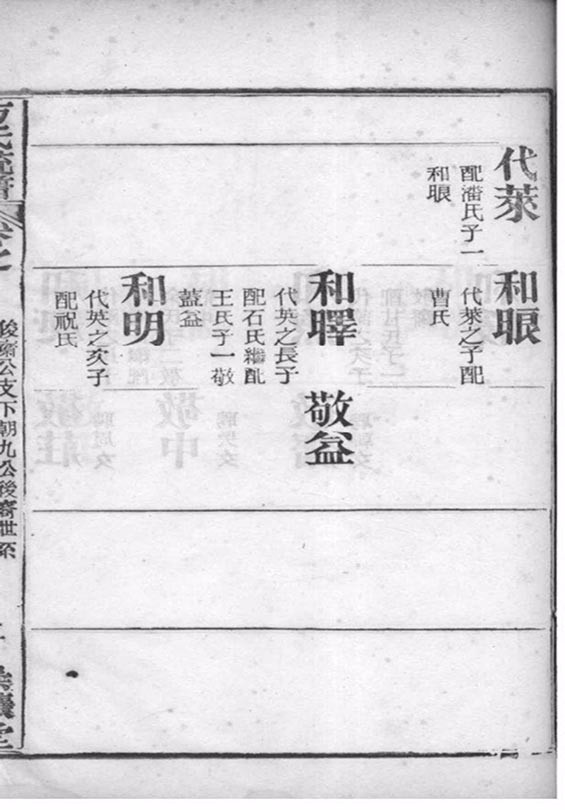 代萊
配潘氏子一
和眼
和眼
代萊之子配
曹氏
和睪
代英之長子
配石氏繼配
王氏子一敬
葢益
敬益
和明
代英之次子
配祝氏
方氏統譜
俊齋公支下朝九公後裔世系